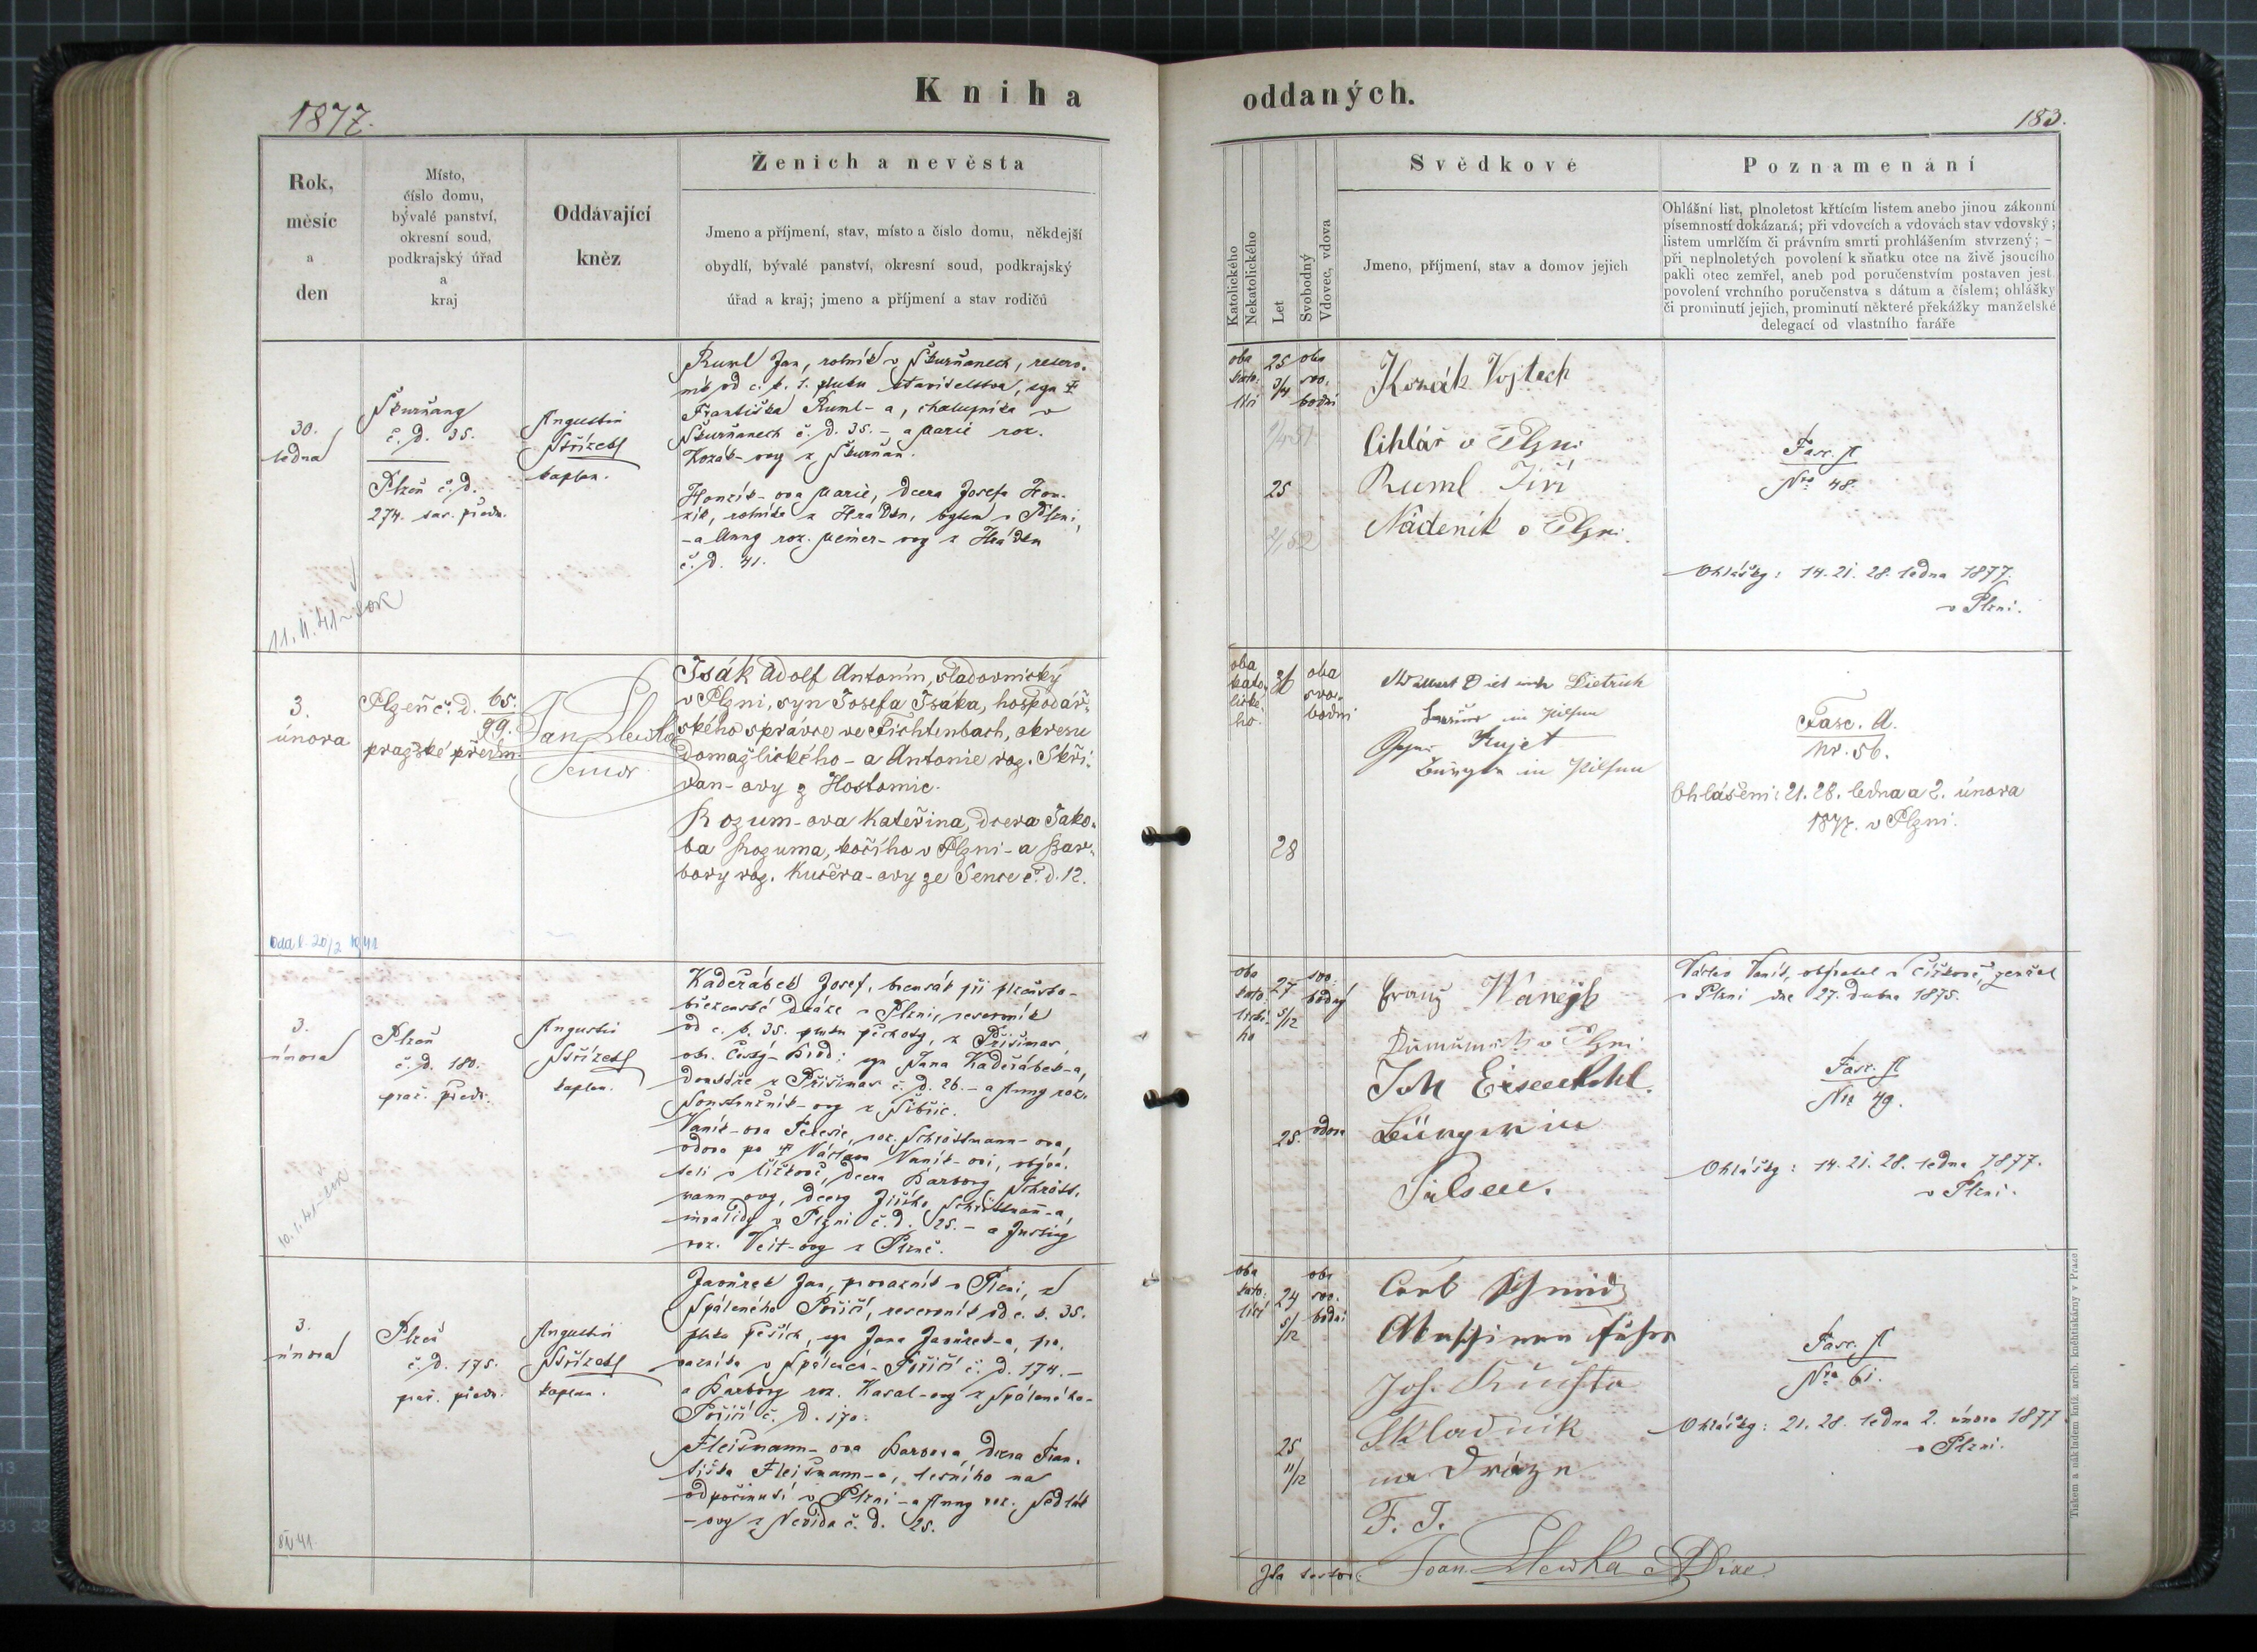 Kniha
oddaných.
1877.
183.
Rok,
měsíc
a
den
Místo,
číslo domu,
bývalé panství,
okresní soud,
podkrajský úřad
a
kraj
Oddávající
kněz
Ženich a nevěsta
Jmeno a příjmení, stav, místo a číslo domu, někdejší
obydlí, bývalé panství, okresní soud, podkrajský
úřad a kraj; jmeno a příjmení a stav rodičů
Katolického
Nekatolického
Let
Svobodný
Vdovec, vdova
Svědkové
Jmeno, příjmení, stav a domov jejich
Poznamenání
Ohlášní list, plnoletost křtícím listem anebo jinou zákonní
písemností dokázaná; při vdovcích a vdovách stav vdovský;
listem umrlčím či právním smrti prohlášením stvrzený; –
při neplnoletých povolení k sňatku otce na živě jsoucího
pakli otec zemřel, aneb pod poručenstvím postaven jest
povolení vrchního poručenstva s dátum a číslem; ohlášky
či prominutí jejich, prominutí některé překážky manželské
delegací od vlastního faráře
30.
ledna
Škurňany
č. d. 35.
Plzeň č. d.
274. sas. předm.
Augustin
Střízek
kaplan.
Ruml Jan, rolník v Škurňanech, reserv-
ník od c. k. 1. pluku stavitelstva, syn †
Františka Ruml-a, chalupníka v
Škurňanech č. d. 35. – a Marie roz.
Kozák-ovy z Škurňan.
Honzík-ova Marie, dcera Josefa Hon-
zík, rolníka z Hrádku, bytem v Plzni,
– a Anny roz. Meimer-ovy z Hrádku
č. d. 41.
11. II. 41
oba
kato-
líci
25
3/4
oba
svo-
bodní
25
Kozák Vojtěch
Cihlář v Plzni
Ruml Jiří
Nádeník v Plzni.
Fasc. A
Nro 48.
Ohlášky: 14. 21. 28. ledna 1877.
v Plzni.
3.
února
Plzeň č. d. 65.
99.
pražské předm.
Jan Hlewka
Senior
Isák Adolf Antonín, sladovnický
v Plzni, syn Josefa Isáka, hospodář-
ského správce ve Fichtenbach, okresu
Domažlického – a Antonie roz. Skři-
van-ovy z Hostomic.
Rozum-ova Kateřina, dcera Jako-
ba Rozuma, kočího v Plzni – a Bar-
bory roz. Kučera-ovy ze Sence č. d. 12.
Odd. l. 20/2 1941
oba
kato-
lické-
ho.
26
oba
svo-
bodní
28
Dietrich
in Pilsen
Kujet
Bürger in Pilsen
Fasc. A.
Nr. 56.
Ohlášení: 21. 28. ledna a 2. února
1877. v Plzni.
3.
února
Plzeň
č. d. 180.
praž. předm.
Augustin
Střízek
kaplan.
Kadeřábek Josef, bremsák při plzeňsko-
březenské dráze v Plzni, reservník
od c. k. 35. pluku pěchoty, z Přišimas,
okr. Český-Brod: syn Jana Kadeřábek-a,
domkáře z Přišimas č. d. 26. – a Anny roz.
z Sibřic.
Vaník-ova Terezie, roz. Schröttmann-ova,
vdova po † Václavu Vaník-ovi, obýva-
teli v Čížkově, dcera Barbory Schrött-
mann-ovy, dcery Jiřího Schröttmann-a,
invalidy v Plzni č. d. 25. – a Justiny
roz. Veit-ovy z Plzně.
oba
kato-
lické-
ho
27
5/12
svo-
bodný
25.
vdova
Franz Wanejk
v Plzni
Joh Eisenkohl.
Bürger in
Pilsen.
Václav Vaník, obývatel v Čížkově, zemřel
v Plzni dne 27. dubna 1875.
Fasc. A
Nro 49.
Ohlášky: 14. 21. 28. ledna 1877.
v Plzni.
3.
února
Plzeň
č. d. 175.
praž. předm.
Augustin
Střízek
kaplan.
Javůrek Jan, provazník v Plzni, z
Spáleného Poříčí, reservník od c. k. 35.
pluku pěších, syn Jana Javůrek-a, pro-
vazníka v Spáleném-Poříčí č. d. 174. –
a Barbory roz. Kasal-ovy z Spáleného-
Poříčí č. d. 170.
Fleišmann-ova Barbora, dcera Fran-
tiška Fleišmann-a, lesního na
odpočinutí v Plzni – a Anny roz. Sedlák
-ovy z Nevida č. d. 25.
oba
kato-
líci
24
5/12
oba
svo-
bodní
25
11/12
Carl Schmid
Maschinenführer
Joh. Kuchta
Skladník
na Drázn
F. J.
Fasc. A
Nro 61.
Ohlášky: 21. 28. ledna 2. února 1877
v Plzni.
Ita testor: Joan. Hlewka
Tiskem a nákladem kníž. arcib. knihtiskárny v Praze